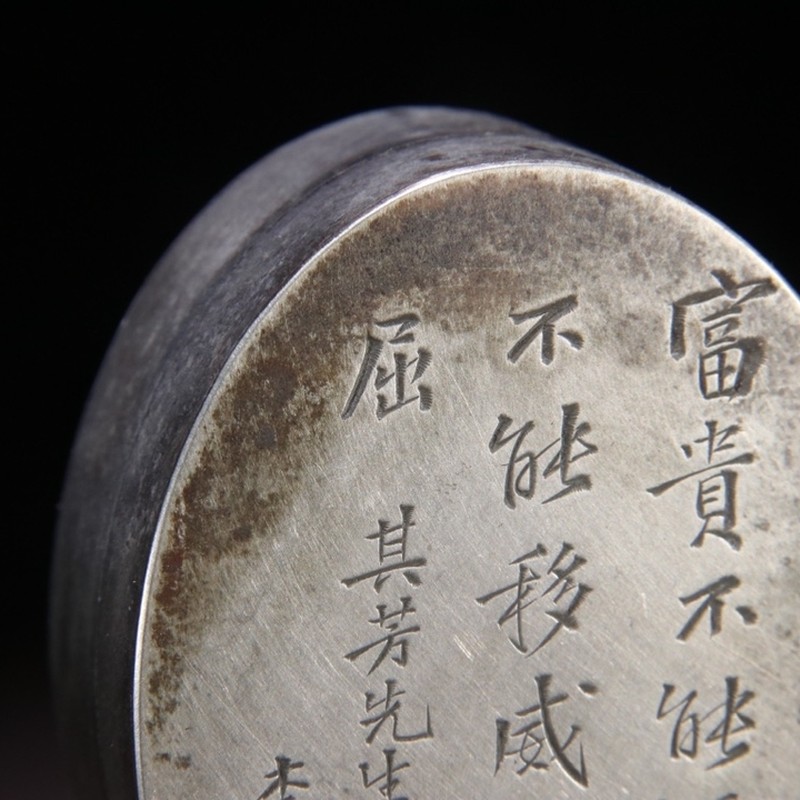 富貴不能
不能移威
屈 其芳先生
李